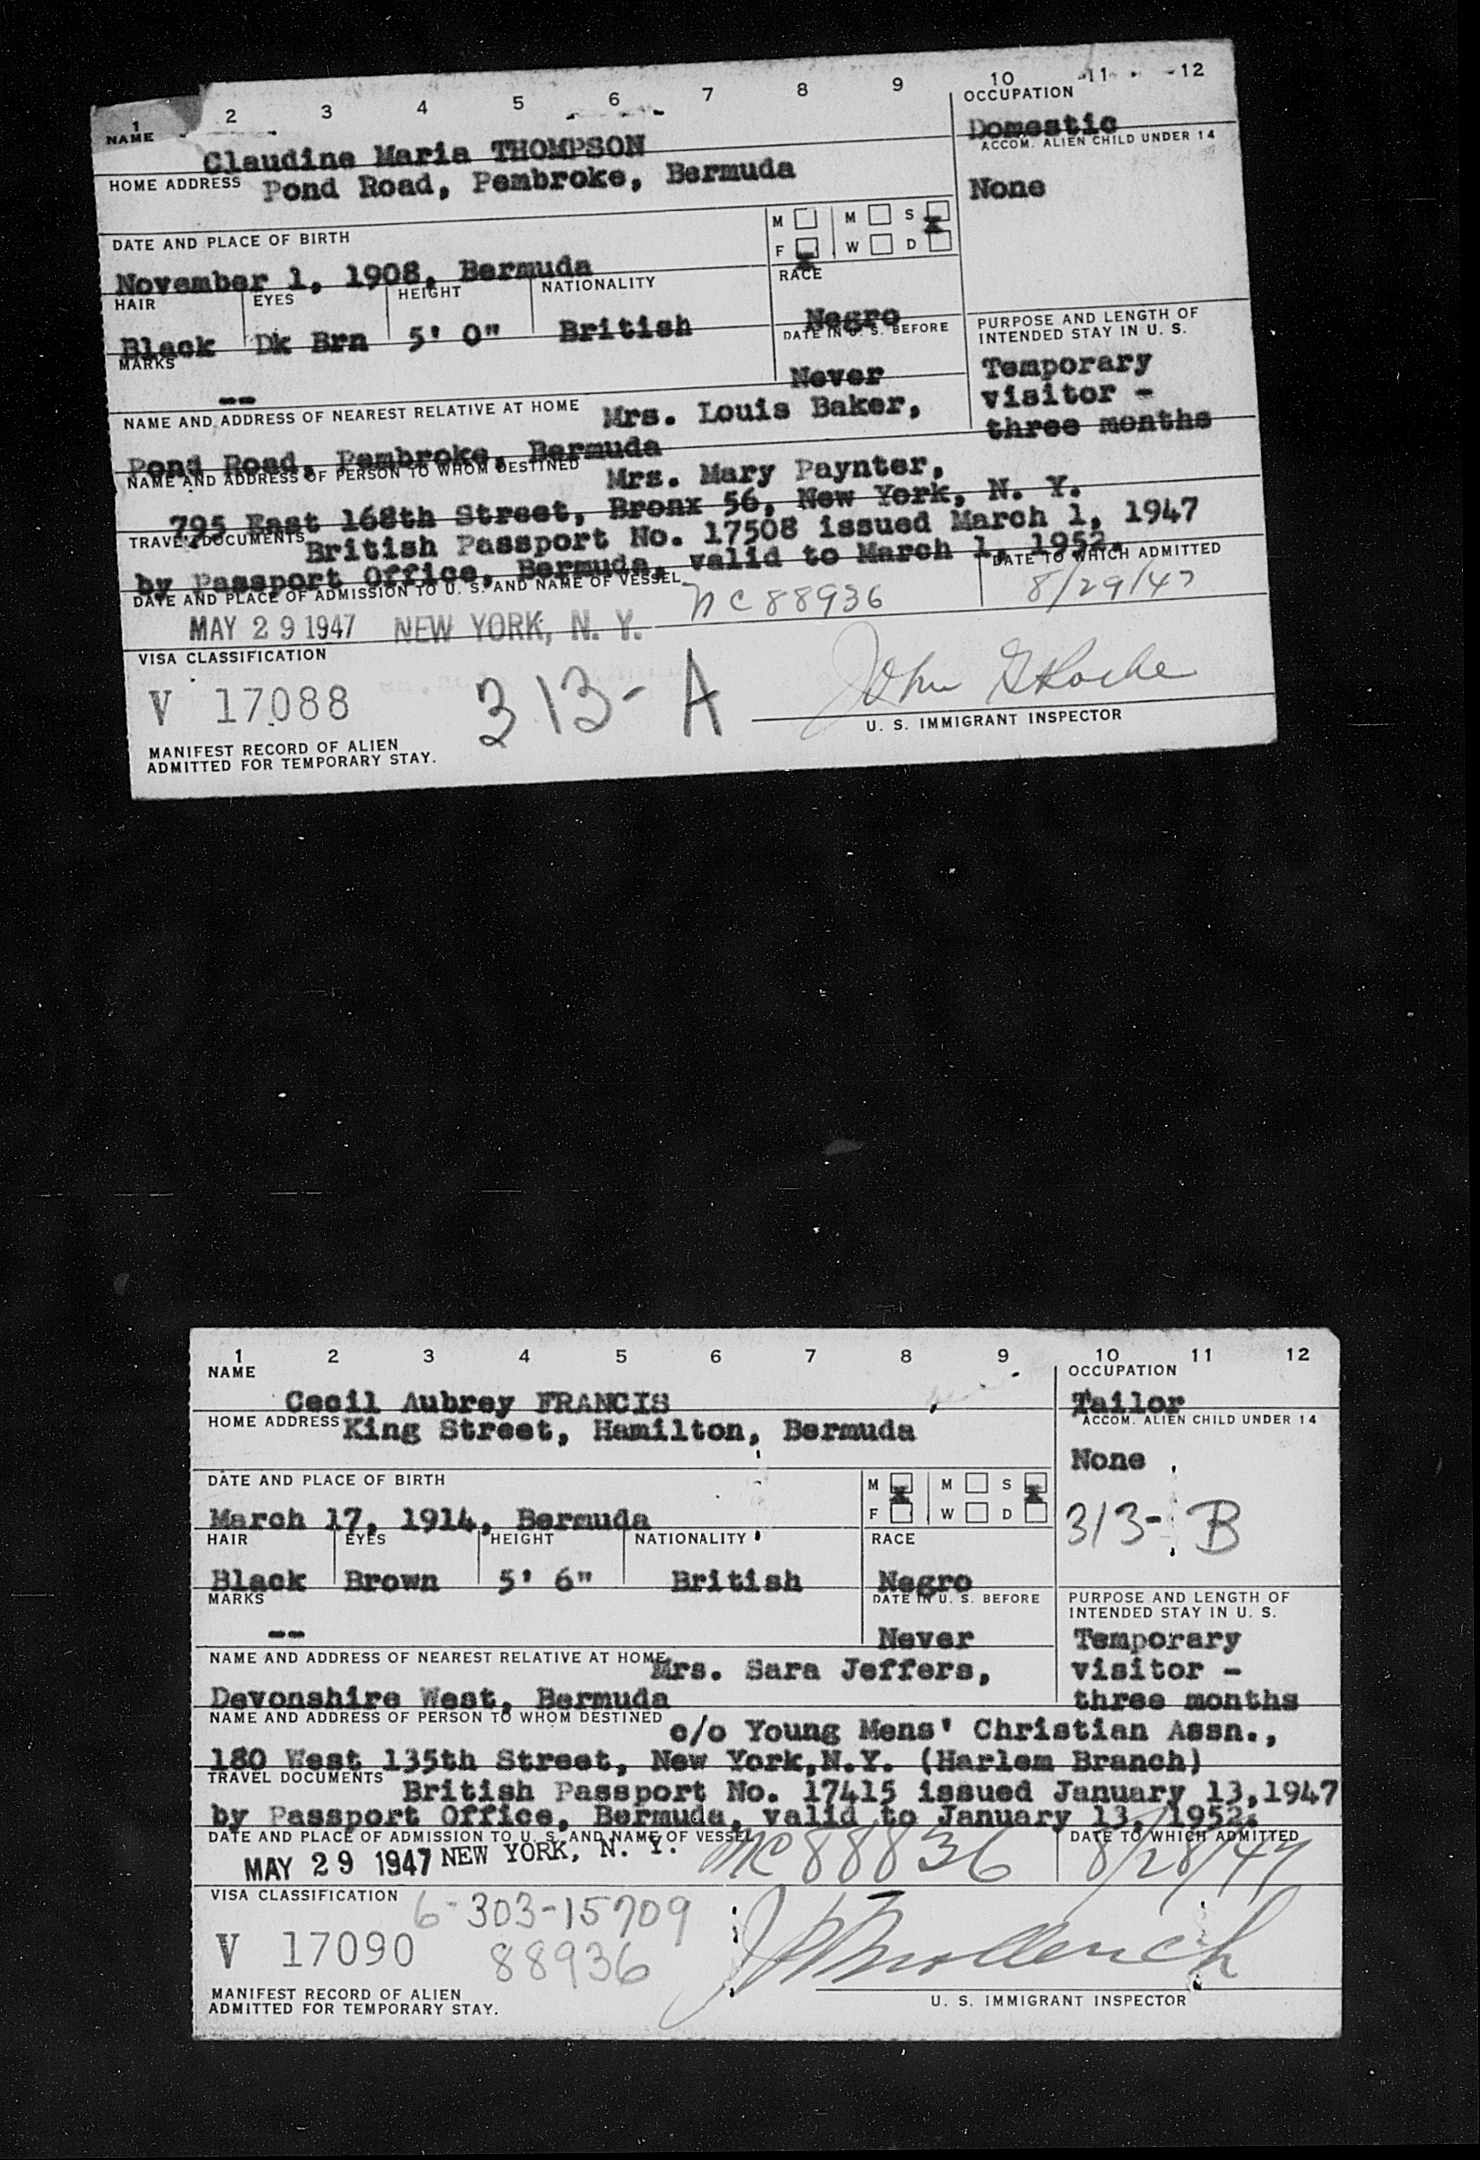 1 2 3 4 5 6 7 8 9 10 11 12
NAME OCCUPATION
Claudine Maria THOMPSON Domestic
HOME ADDRESS Pond Road, Pembroke, Bermuda
ACCOM. ALIEN CHILD UNDER 14
None
DATE AND PLACE OF BIRTH M M S
F W D
November 1, 1908, Bermuda
HAIR EYES HEIGHT NATIONALITY RACE
Black Dk Brn 5' 0" British Negro
MARKS DATE IN U. S. BEFORE
-- Never
PURPOSE AND LENGTH OF
INTENDED STAY IN U. S.
Temporary
visitor -
three months
NAME AND ADDRESS OF NEAREST RELATIVE AT HOME Mrs. Louis Baker,
Pond Road, Pembroke, Bermuda
NAME AND ADDRESS OF PERSON TO WHOM DESTINED Mrs. Mary Paynter,
795 East 168th Street, Bronx 56, New York, N. Y.
TRAVEL DOCUMENTS British Passport No. 17508 issued March 1, 1947
by Passport Office, Bermuda, valid to March 1, 1952.
DATE AND PLACE OF ADMISSION TO U. S. AND NAME OF VESSEL DATE TO WHICH ADMITTED
MAY 29 1947 NEW YORK, N. Y. NC88936 8/29/47
VISA CLASSIFICATION
V 17088 313-A John G Roche
U. S. IMMIGRANT INSPECTOR
MANIFEST RECORD OF ALIEN
ADMITTED FOR TEMPORARY STAY.
1 2 3 4 5 6 7 8 9 10 11 12
NAME OCCUPATION
Cecil Aubrey FRANCIS Tailor
HOME ADDRESS King Street, Hamilton, Bermuda
ACCOM. ALIEN CHILD UNDER 14
None
313-B
DATE AND PLACE OF BIRTH M M S
F W D
March 17, 1914, Bermuda
HAIR EYES HEIGHT NATIONALITY RACE
Black Brown 5' 6" British Negro
MARKS DATE IN U. S. BEFORE
-- Never
PURPOSE AND LENGTH OF
INTENDED STAY IN U. S.
Temporary
visitor -
three months
NAME AND ADDRESS OF NEAREST RELATIVE AT HOME Mrs. Sara Jeffers,
Devonshire West, Bermuda
NAME AND ADDRESS OF PERSON TO WHOM DESTINED c/o Young Mens' Christian Assn.,
180 West 135th Street, New York,N.Y. (Harlem Branch)
TRAVEL DOCUMENTS British Passport No. 17415 issued January 13,1947
by Passport Office, Bermuda, valid to January 13, 1952.
DATE AND PLACE OF ADMISSION TO U. S. AND NAME OF VESSEL DATE TO WHICH ADMITTED
MAY 29 1947 NEW YORK, N. Y. NC88836 8/28/47
VISA CLASSIFICATION 6-303-15709
V 17090 88936
U. S. IMMIGRANT INSPECTOR
MANIFEST RECORD OF ALIEN
ADMITTED FOR TEMPORARY STAY.